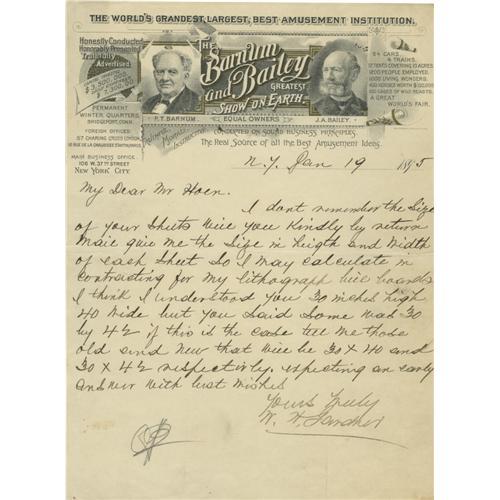 THE WORLD'S GRANDEST, LARGEST, BEST AMUSEMENT INSTITUTION.
Honestly Conducted
Honorably Presented
Truthfully Advertised.
THE Barnum and Bailey
GREATEST SHOW ON EARTH
P.T. BARNUM. EQUAL OWNERS J.A. BAILEY.
64 CARS.
4 TRAINS.
1200 PEOPLE EMPLOYED.
GREAT WORLD'S FAIR.
PERMANENT
WINTER QUARTERS,
BRIDGEPORT, CONN.
FOREIGN OFFICES:
MAIN BUSINESS OFFICE,
106 W. 37TH STREET
NEW YORK CITY
Refined, Moral, Instructive.
CONDUCTED ON SOUND BUSINESS PRINCIPLES.
The Real Source of all the Best Amusement Ideas.
N.Y. Jan 19 1895
My Dear Mr Hoen.
I dont remember the Size
of your Sheets Will you Kindly by return
Mail give me the Size in heigth and Width
of each Sheet So I May Calculate in
contracting for my lithograph bill boards
I think I understood you 30 inches high
40 Wide but you Said Some was 30
by 42 if this is the case tell me those
old and New that will be 30 x 40 and
30 x 42 respectivly. expecting an early
answer With best Wishes
Yours Truly
W. H. Gardner